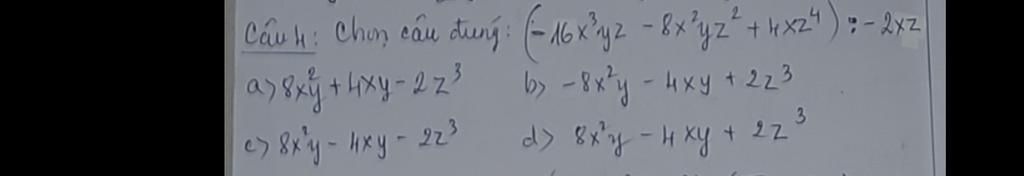 Câu 4: Chọn câu đúng: (-16x³yz - 8x²yz² + 4xz⁴) : -2xz
a) 8x²y + 4xy - 2z³ b) -8x²y - 4xy + 2z³
c) 8x²y - 4xy - 2z³ d) 8x²y - 4xy + 2z³